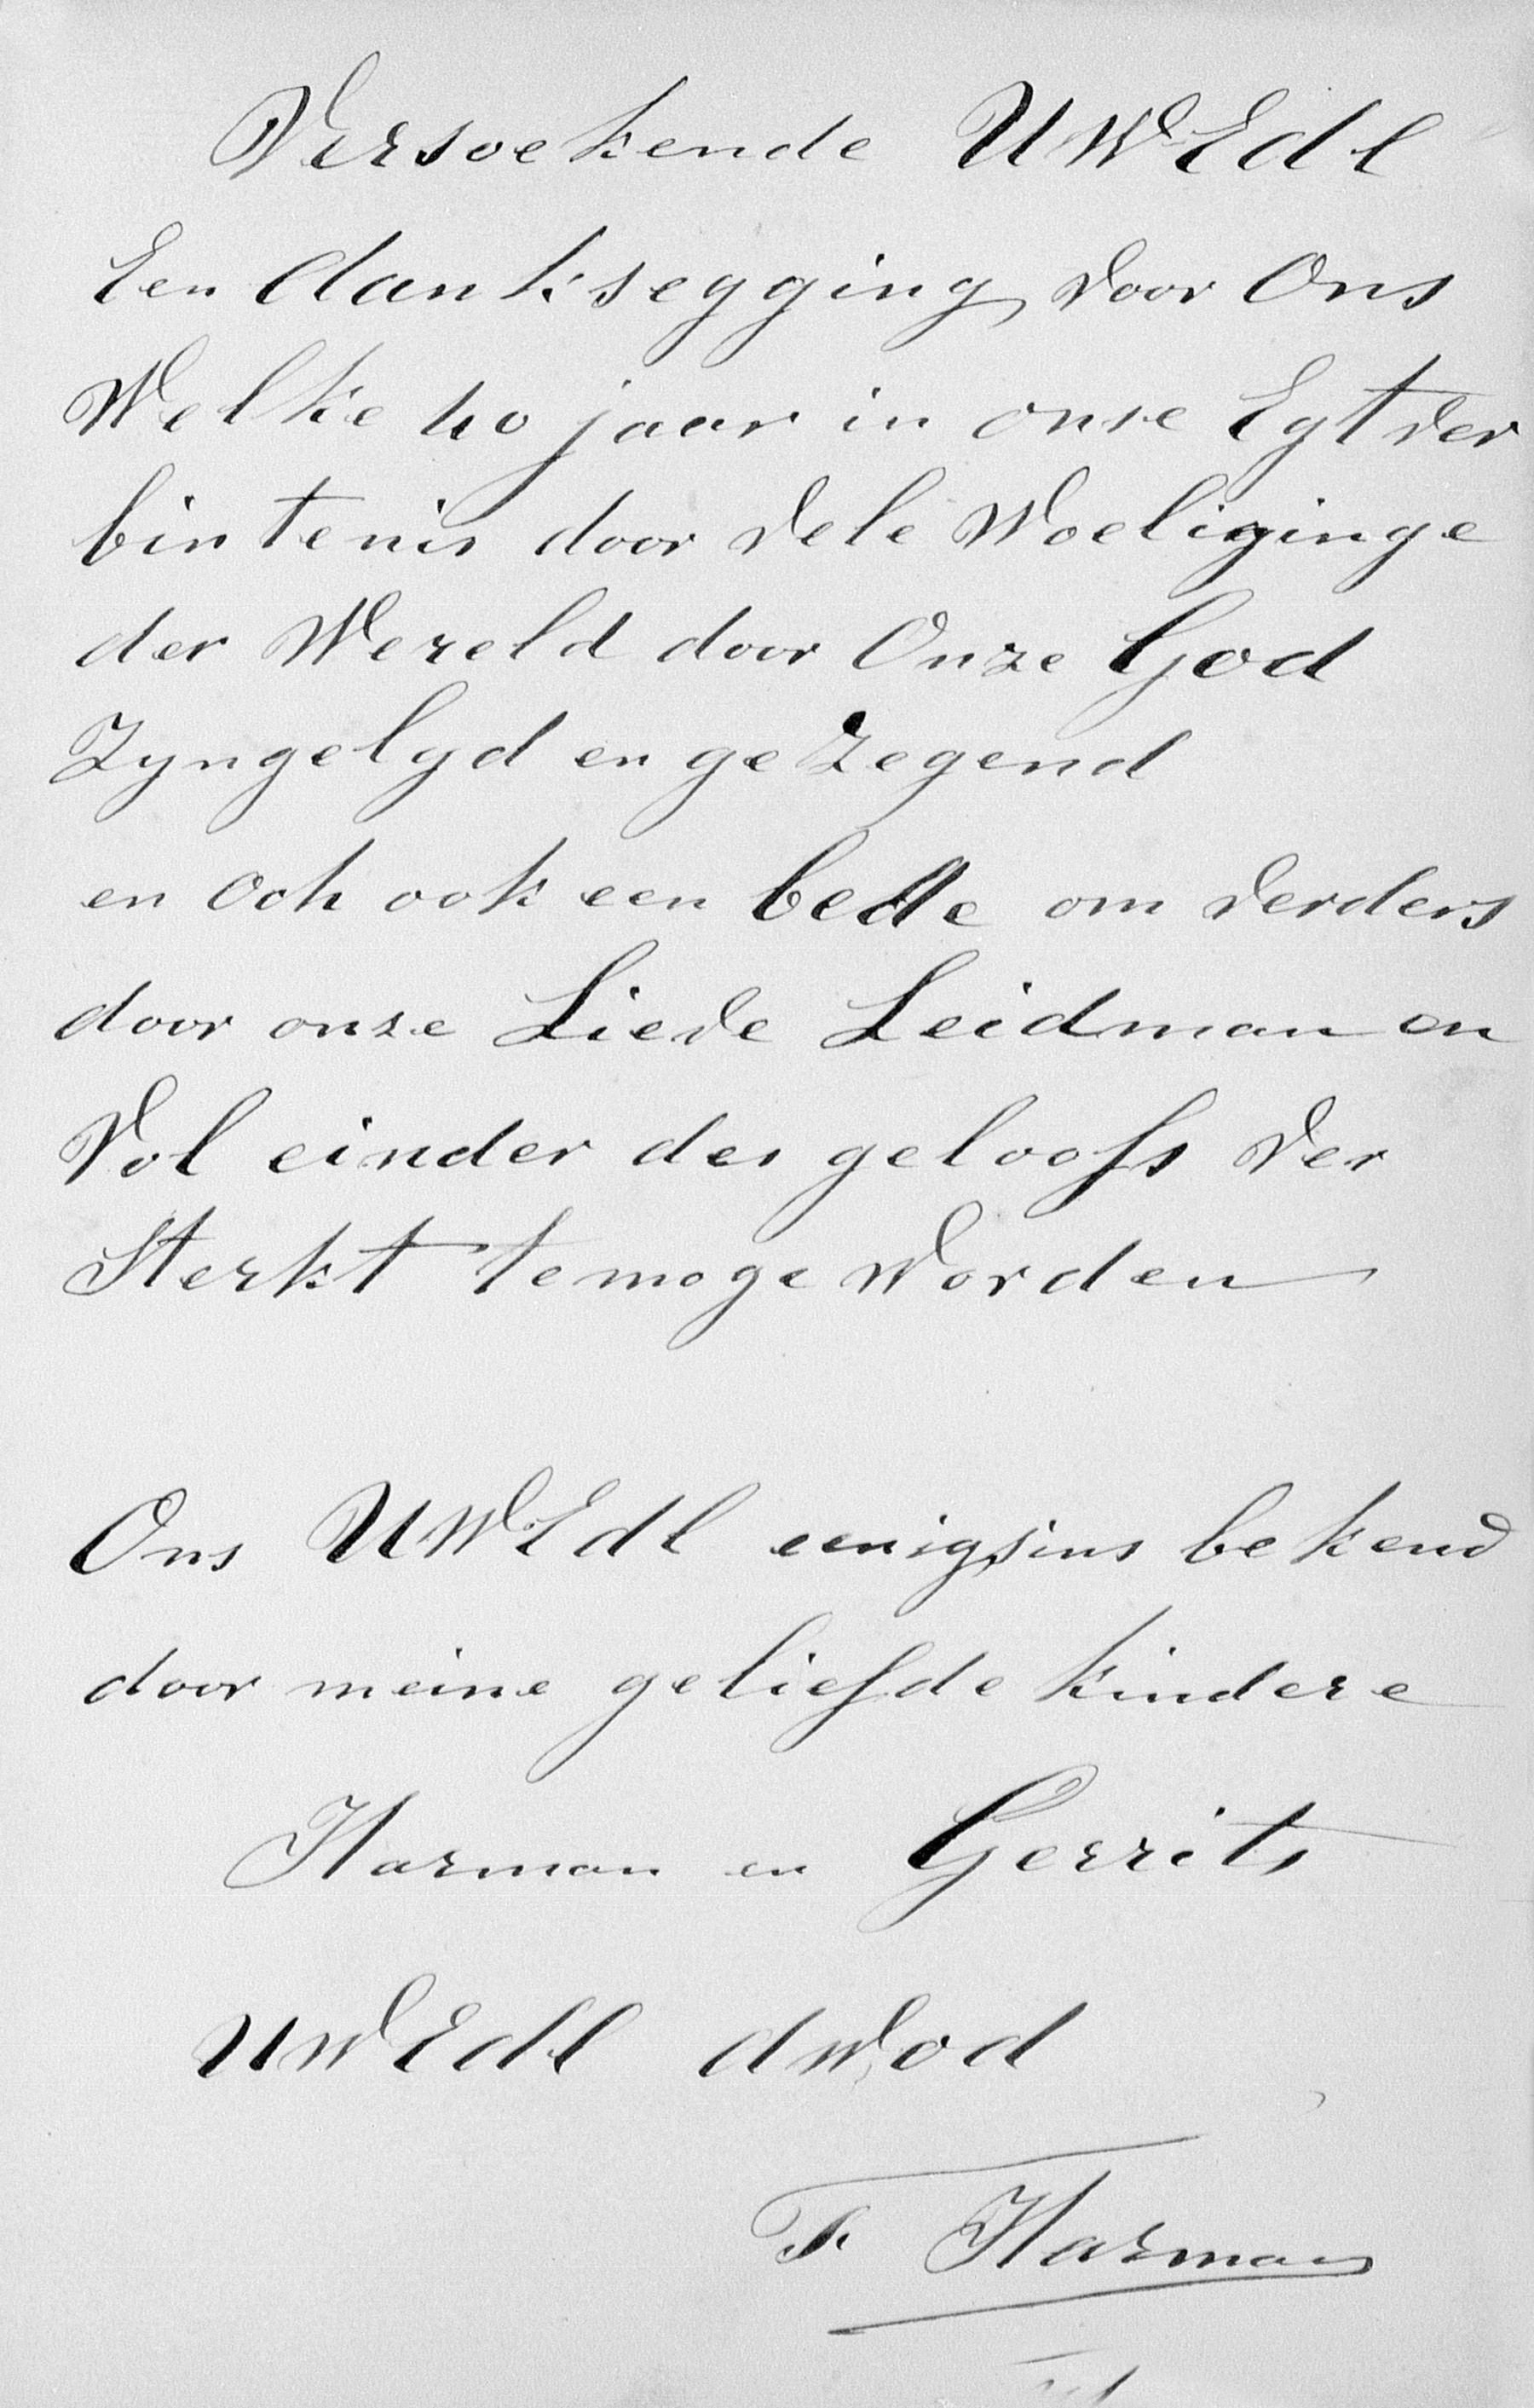 Versoekende UWEdl
Een danksegging voor Ons
Welke 40 jaar in onse Egtver
bintenis door vele Woeliginge
der Wereld door Onze God
Zyngelyd en gezegend
en och ook een bede om verders
door onze Lieve Leidman en
Vol einder des geloofs ver
Sterkt te moge Worden
Ons UWEdl eenigsins bekend
door meine geliefde kindere
Harman en Gerrits
UWEdl dWod
Harman